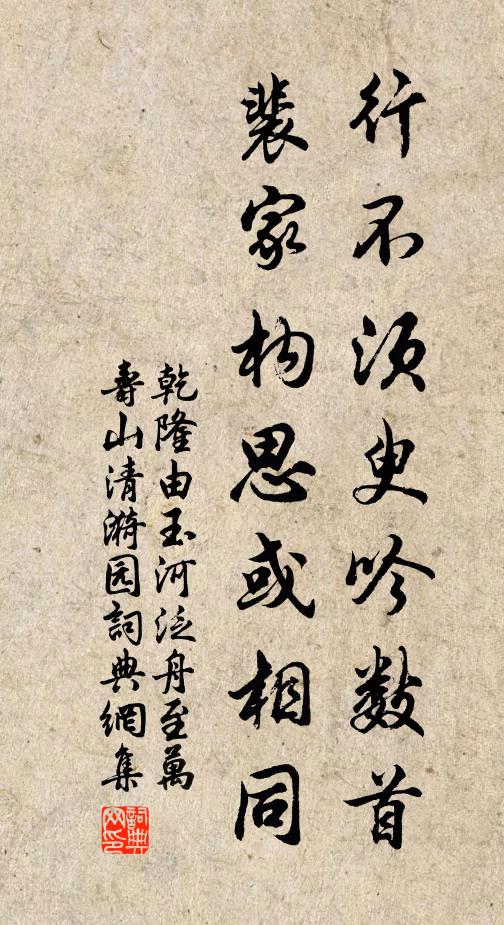 行不须臾吟数首
裴家构思或相同
乾隆由玉河泛舟至萬
壽山清漪园詞典網集
詞典
网印